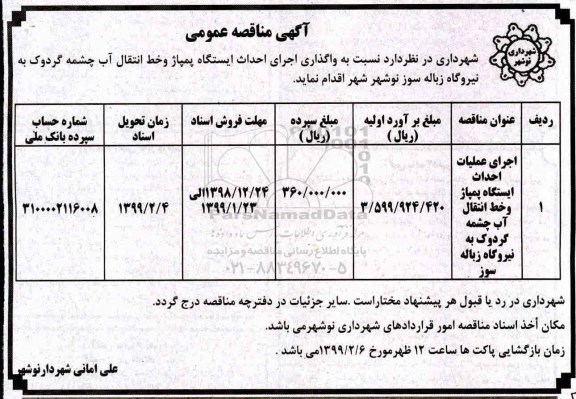 آگهی مناقصه عمومی
شهرداری نوشهر
شهرداری در نظردارد نسبت به واگذاری اجرای احداث ایستگاه پمپاژ وخط انتقال آب چشمه گردوک به
نیروگاه زباله سوز نوشهر شهر اقدام نماید.
ردیف	عنوان مناقصه	مبلغ بر آورد اولیه (ریال)	مبلغ سپرده (ریال)	مهلت فروش اسناد	زمان تحویل اسناد	شماره حساب سپرده بانک ملی
۱	اجرای عملیات احداث ایستگاه پمپاژ وخط انتقال آب چشمه گردوک به نیروگاه زباله سوز	۳/۵۹۹/۹۲۴/۴۲۰	۳۶۰/۰۰۰/۰۰۰	۱۳۹۸/۱۲/۲۴الی ۱۳۹۹/۱/۲۳	۱۳۹۹/۲/۴	۳۱۰۰۰۰۲۱۱۶۰۰۸
ParsNamadData
پایگاه اطلاع رسانی مناقصه و مزایده
۰۲۱-۸۸۳۴۹۶۷۰-۵
شهرداری در رد یا قبول هر پیشنهاد مختاراست .سایر جزئیات در دفترچه مناقصه درج گردد.
مکان أخذ اسناد مناقصه امور قراردادهای شهرداری نوشهرمی باشد.
زمان بازگشایی پاکت ها ساعت ۱۲ ظهرمورخ ۱۳۹۹/۲/۶می باشد .
علی امانی شهردارنوشهر